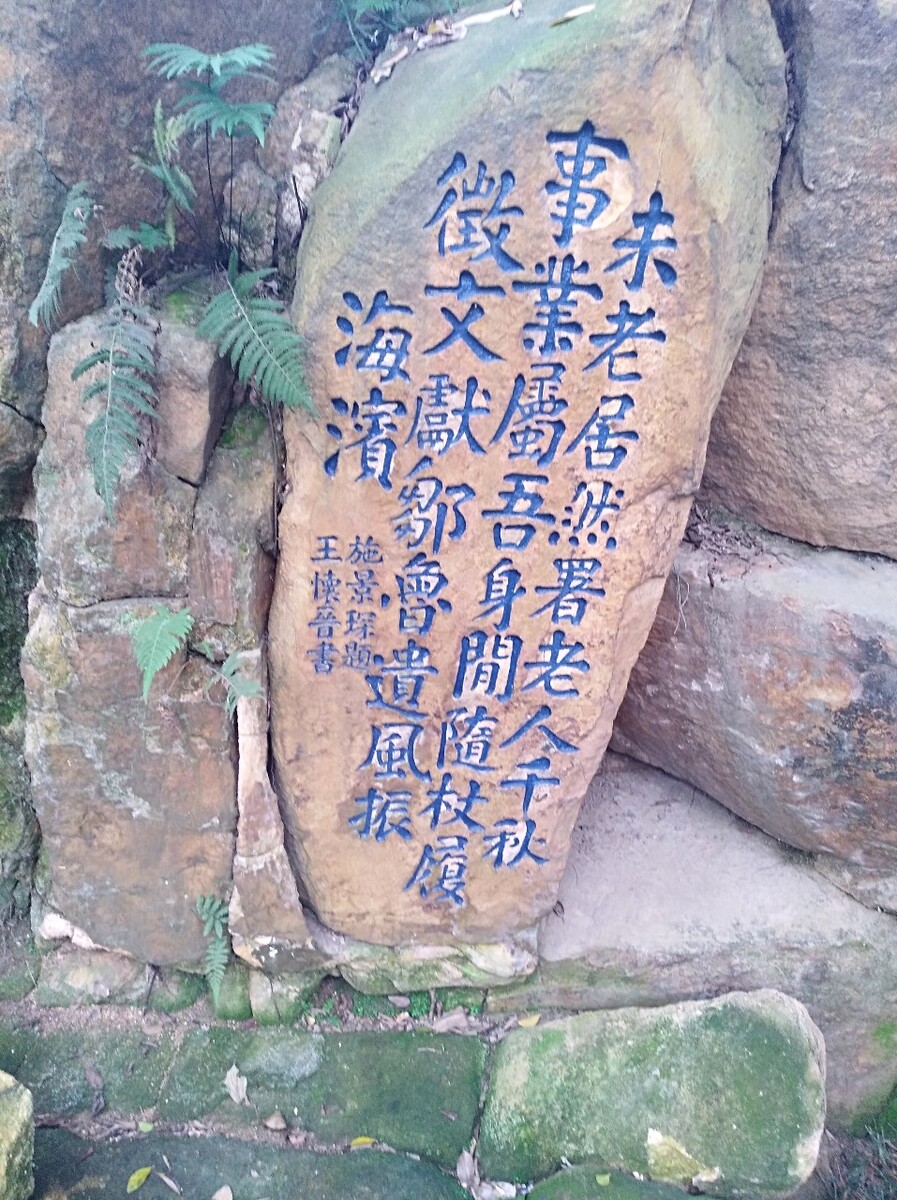 未老居然署老人千秋
事業屬吾身閒隨杖履
徵文獻鄒魯遺風振
海濱
施景琛題
王懷晉書